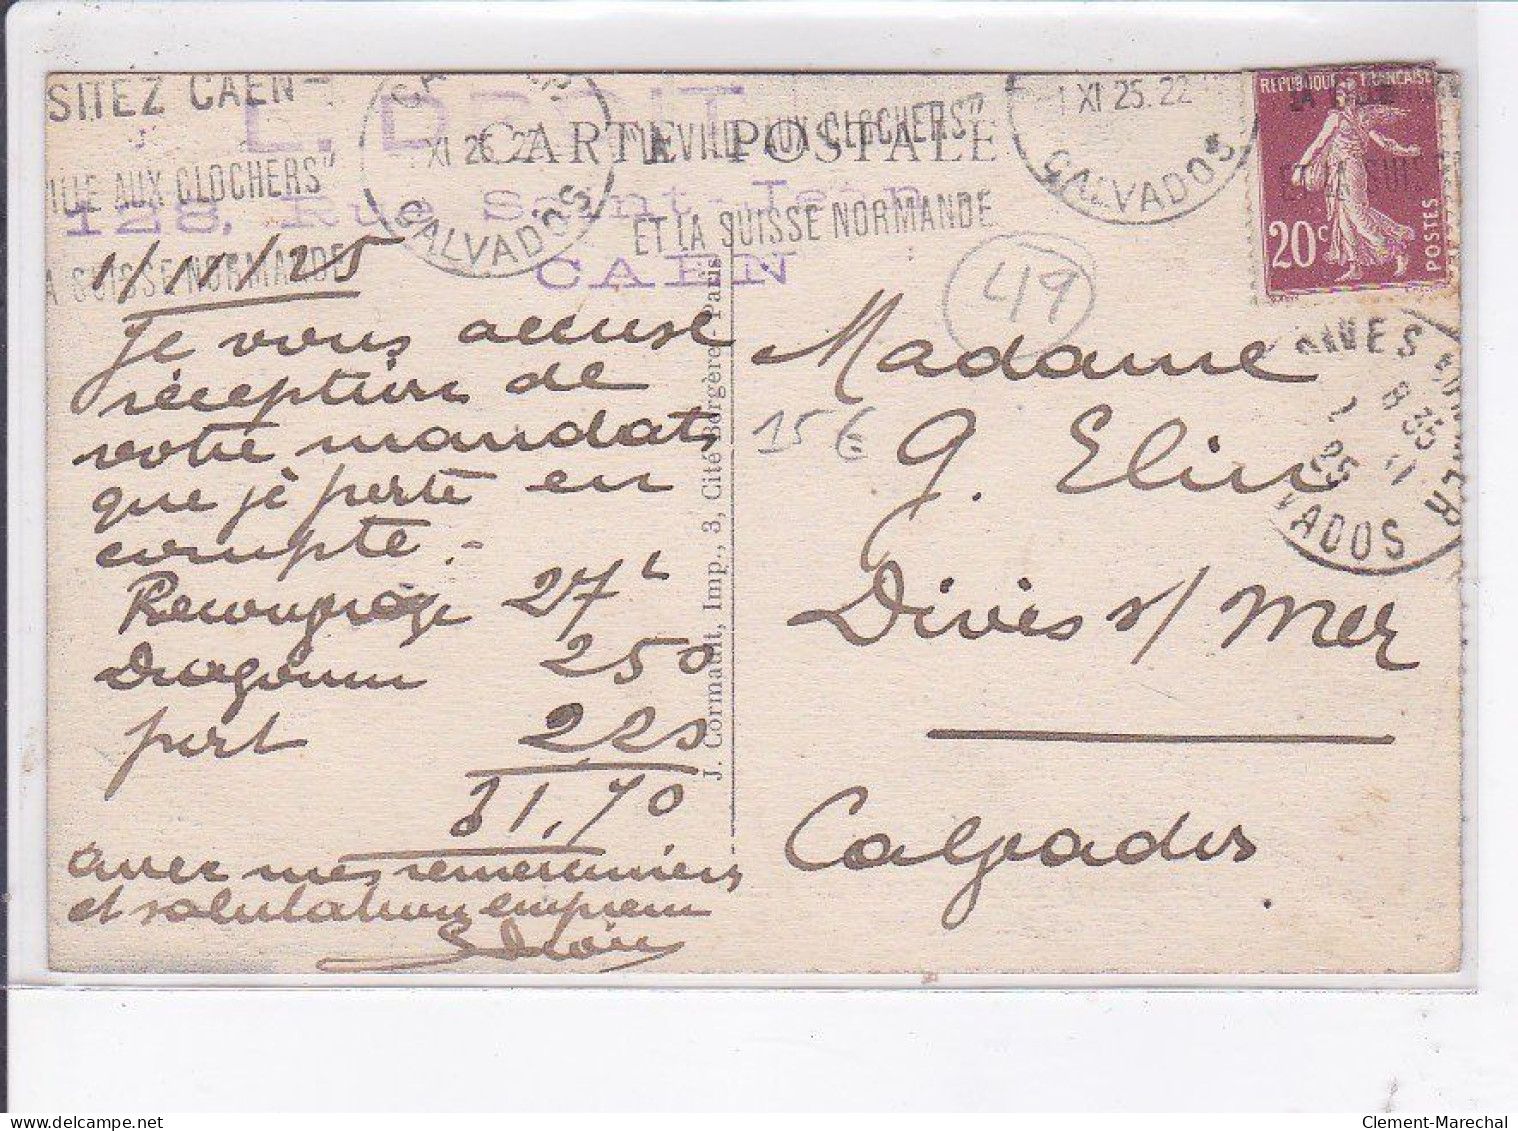 SITEZ CAEN
VILLE AUX CLOCHERS"
A SUISSE NORMANDE
L. DROIT
128, Rue Saint-Jean
CAEN
CARTE POSTALE
XI 25.22
CALVADOS
"LA VILLE AUX CLOCHERS"
ET LA SUISSE NORMANDE
1 XI 25.22
CALVADOS
REPUBLIQUE FRANÇAISE
20c
POSTES
49
15 €
DIVES SUR MER
8 35
2 11
25
VADOS
1/11/25
Je vous accuse
réception de
votre mandat
que je porte en
compte.-
27
Dragonne 250
port 220
31,70
avec mes remerciements
et salutations
Droit
J. Cormault, Imp., 3, Cité Bergère - Paris
Madame
G. Elin
Dives s/ Mer
Calvados
Clement-Marechal